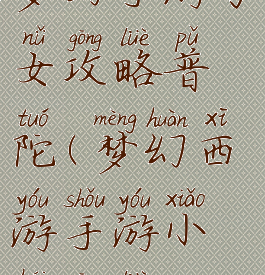 nǚ gōng lüè pǔ
女攻略普
tuó mèng huàn xī
陀(梦幻西
yóu shǒu yóu xiǎo
游手游小